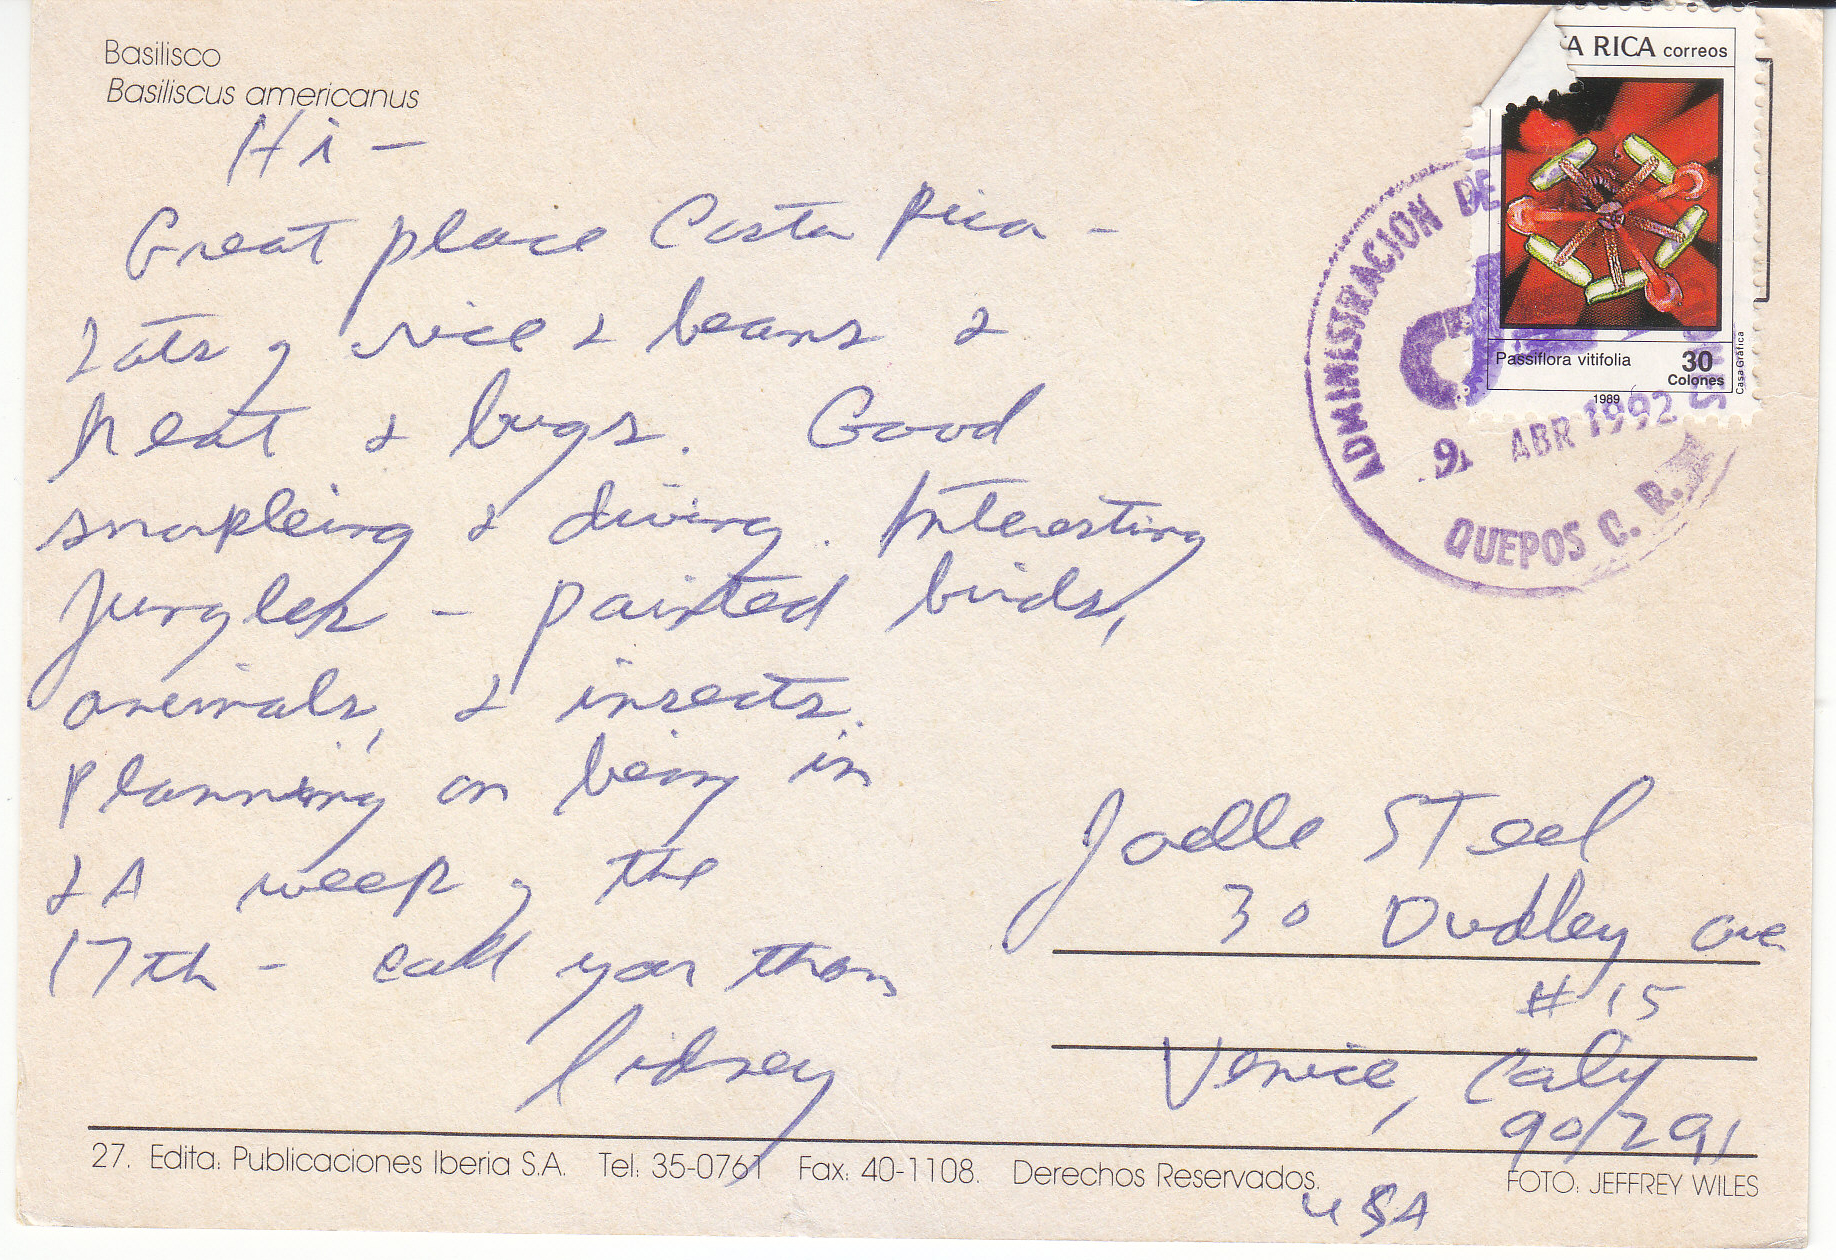 Basilisco
Basiliscus americanus
Hi -
Great place Costa Rica -
Lots of rice & beans &
heat & bugs. Good
snorkleing & diving. Interesting
jungles - painted birds,
animals, & insects.
Planning on being in
LA week of the
17th - call you then
Sidney
A RICA correos
Passiflora vitifolia
30
Colones
1989
Casa Gráfica
ADMINISTRACION DE
9 ABR 1992
QUEPOS C. R.
Joelle Steel
30 Dudley ave
# 15
Venice, Calif
90291
USA
27. Edita: Publicaciones Iberia S.A. Tel: 35-0761 Fax: 40-1108. Derechos Reservados.
FOTO: JEFFREY WILES